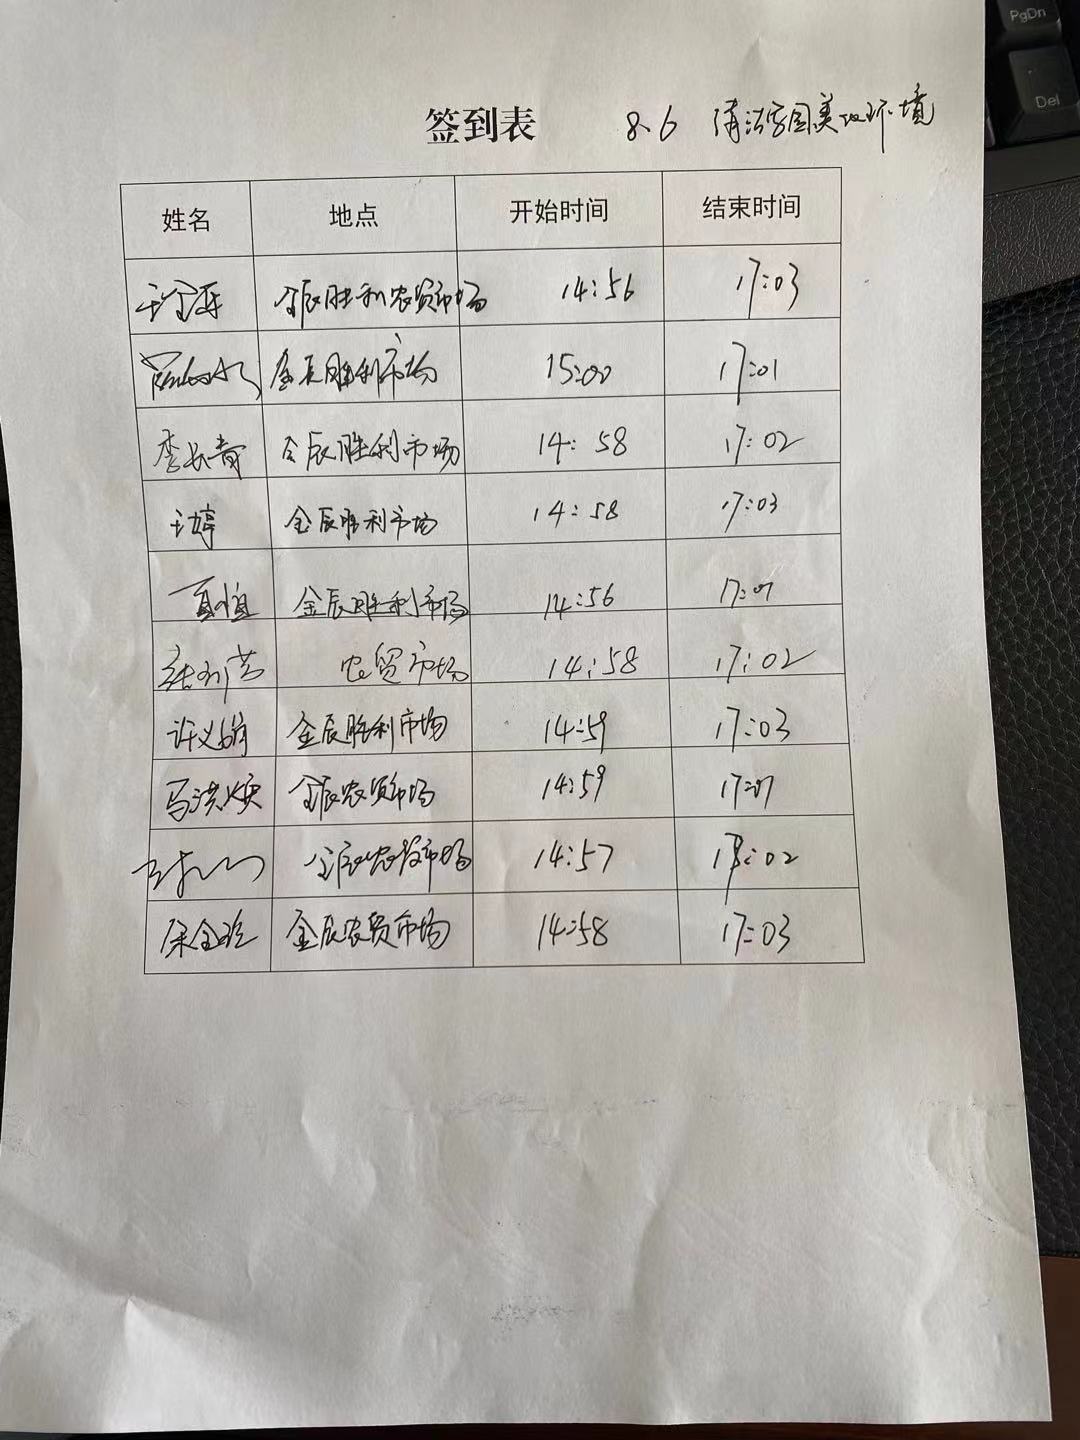 签到表 8.6 清洁家园美化环境
姓名 地点 开始时间 结束时间
金辰胜利农贸市场 14:56 17:03
金辰胜利市场 15:00 17:01
李长青 金辰胜利市场 14:58 17:02
王婷 金辰胜利市场 14:58 17:03
夏恒 金辰胜利市场 14:56 17:01
农贸市场 14:58 17:02
许义娟 金辰胜利市场 14:59 17:03
马洪焕 金辰农贸市场 14:59 17:01
金辰农贸市场 14:57 17:02
金辰农贸市场 14:58 17:03
PgDn
Del